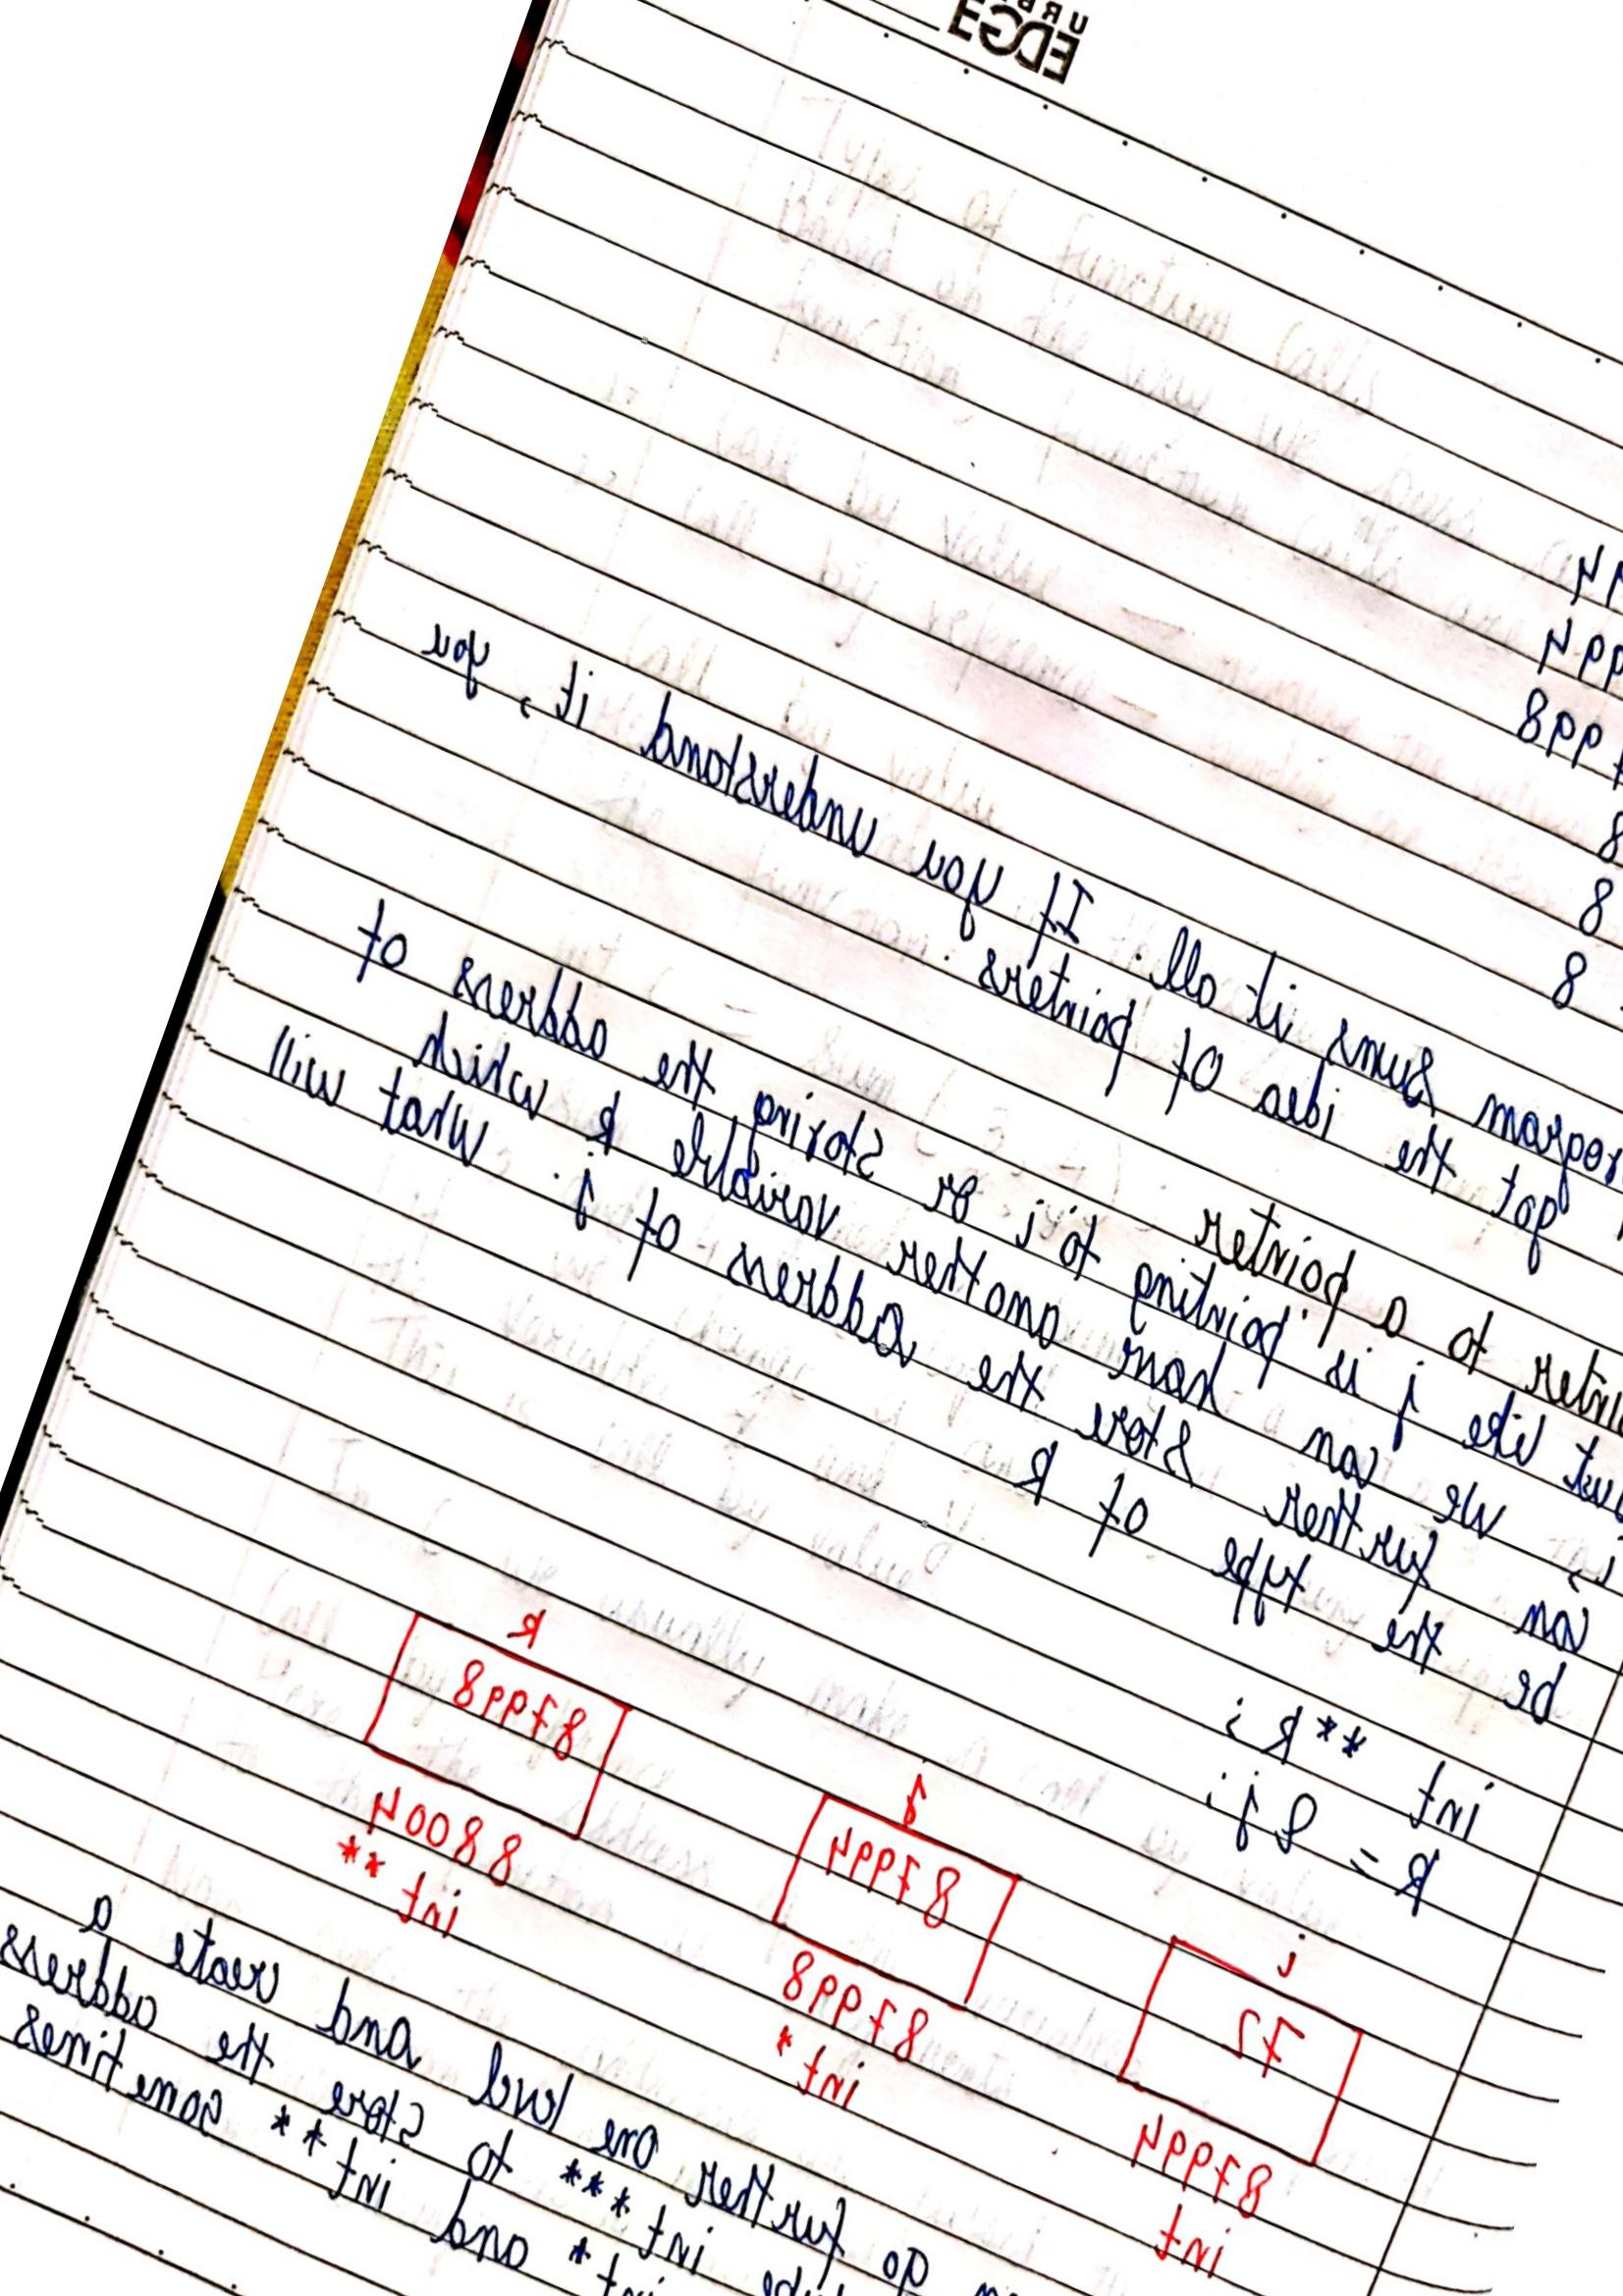 URB
EDGE
94
994
7998
8
8
8
rogram sums it all. If you understand it, you
got the idea of pointers.
inter to a pointer
ut like j is pointing to i or storing the address of
we can have another variable k which
can further store the address of j. What will
be the type of k
int **k;
k = &j;
i j k
72 87994 87998
87994 87998 88004
int int* int**
go further one level and create a
int*** to store the address
int* and int** sometimes